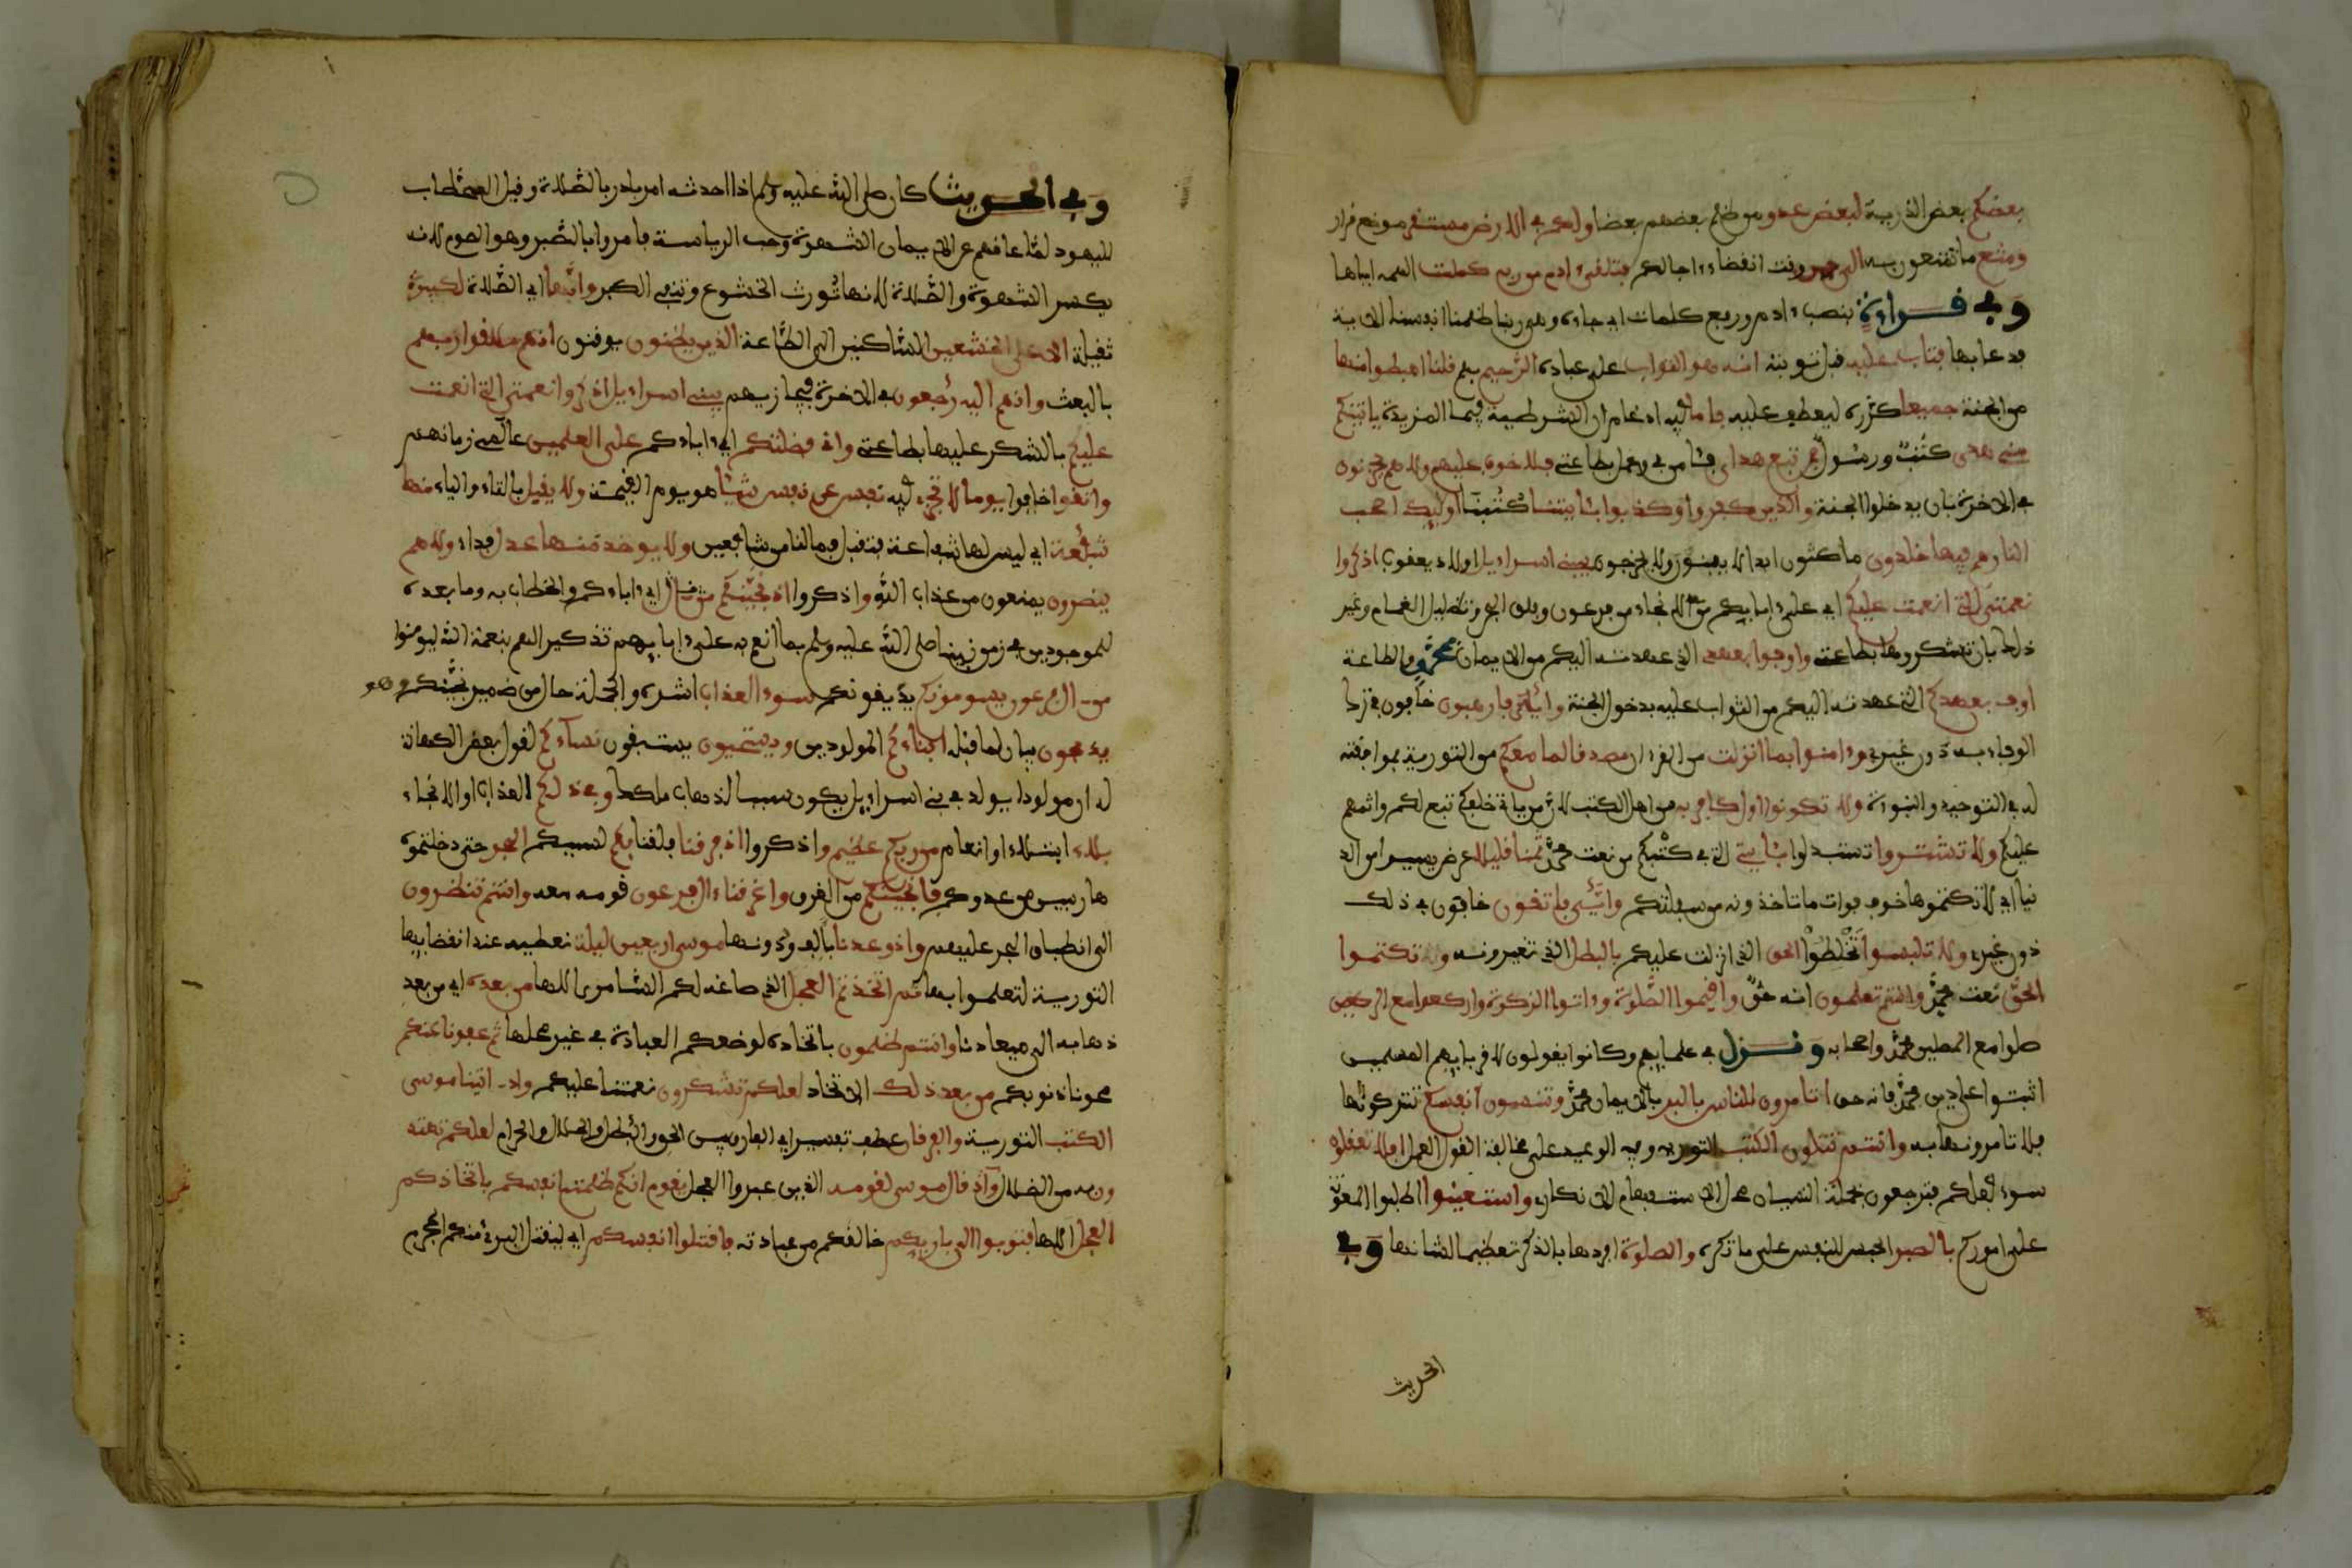 بعضكم بعض الذرية لبعض عدو من ظلم بعضهم بعضا ولكم في الارض مستقر موضع قرار
ومتع ما تتمتعون به الى حين وقت انقضاء ءاجالكم فتلقىء ادم من ربه كلمت الهمه اياها
وفي قراءة بنصب ءادم ورفع كلمات اي جاءه وهي ربنا ظلمنا انفسنا الاية
فدعا بها فتاب عليه قبل توبته انه هو التواب على عباده الرحيم بهم قلنا اهبطوا منها
من الجنة جميعا كرره ليعطف عليه فاما فيه ادغام ان الشرطية في ما المزيدة ياتينكم
مني هدى كتب ورسول فمن تبع هداي فئامن بي وعمل بطاعتي فلا خوف عليهم ولا هم يحزنون
في الاخرة بان يدخلوا الجنة والذين كفروا وكذبوا بئايتنا كتبنا اوليك اصحب
النار هم فيها خلدون ماكثون ابدا لا يفنون ولا يخرجون يبني اسراءيل اولاد يعقوب اذكروا
نعمتي التي انعمت عليكم اي على ءابايكم من الانجاء من فرعون وفلق البحر وتظليل الغمام وغير
ذلك بان تشكروها بطاعتي واوفوا بعهدي الذي عهدته اليكم من الايمان بمحمد والطاعة
اوف بعهدكم الذي عهدته اليكم من الثواب عليه بدخول الجنة وايي فارهبون خافون في ترك
الوفاء به دون غيري وءامنوا بما انزلت من القرءان مصدقا لما معكم من التورية بموافقته
له في التوحيد والنبوءة ولا تكونوا اول كافر به من اهل الكتب لان من ياتي خلفكم تبع لكم واثمهم
عليكم ولا تشتروا تستبدلوا بئايتي التي في كتبكم من نعت محمد ثمنا قليلا عرض يسيرا من الد
نيا اي لا تكتموها خوف فوات ما تاخذونه من سفلتكم وايي فاتقون خافون في ذلك
دون غيري ولا تلبسوا تخلطوا الحق الذي انزلت عليكم بالبطل الذي تغيرونه ولا تكتموا
الحق نعت محمد وانتم تعلمون انه حق واقيموا الصلوة وءاتوا الزكوة واركعوا مع الركعين
صلوا مع المصلين محمد واصحابه ونزل في علمايهم وكانوا يقولون لاقربايهم المسلمين
اثبتوا على دين محمد فانه حق اتامرون الناس بالبر بالايمان بمحمد وتنسون انفسكم تتركونها
فلا تامرونها به وانتم تتلون الكتب التورية وفيه الوعيد على مخالفة القول العمل افلا تعقلون
سوء فعلكم فترجعون فجملة النسيان محل الاستفهام الانكاري واستعينوا اطلبوا المعونة
على اموركم بالصبر الحبس للنفس على ما تكره والصلوة افردها بالذكر تعظيما لشانها وفي
الحديث
وفي الحديث كان صلى الله عليه وسلم اذا احدثه امر بادر بالصلاة وقيل الخطاب
لليهود لما عاقهم عن الايمان الشهوة وحب الرياسة فامروا بالصبر وهو الصوم لانه
يكسر الشهوة والصلاة لانها تورث الخشوع وتنفي الكبر وانها اي الصلاة لكبيرة
ثقيلة الا على الخشعين الساكنين الى الطاعة الذين يظنون يوقنون انهم ملقوا ربهم
بالبعث وانهم اليه رجعون في الاخرة فيجازيهم يبني اسراءيل اذكروا نعمتي التي انعمت
عليكم بالشكر عليها بطاعتي واني فضلتكم اي ءاباءكم على العلمين عالمي زمانهم
واتقوا خافوا يوما لا تجزي فيه نفس عن نفس شيئا هو يوم القيمة ولا يقبل بالتاء والياء منها
شفعة اي ليس لها شفاعة فتقبل فما لنا من شافعين ولا يوخذ منها عدل فداء ولا هم
ينصرون يمنعون من عذاب الله واذكروا اذ نجينكم اي ءاباءكم والخطاب به وما بعده
للموجودين في زمن نبينا صلى الله عليه وسلم بما انعم به على ءابايهم تذكير الهم بنعمة الله ليومنوا
من ءال فرعون يسومونكم يذيقونكم سوء العذاب اشده والجملة حال من ضمير نجينكم
يذبحون بيان لما قبله ابناءكم المولودين ويستحيون يستبقون نساءكم لقول بعض الكهانة
له ان مولودا يولد في بني اسراءيل يكون سببا لذهاب ملكك وفي ذلكم العذاب او الانجاء
بلاء ابتلاء او انعام من ربكم عظيم واذكروا اذ فرقنا فلقنا بكم لسببكم البحر حتى دخلتموه
هاربين من عدوكم فانجينكم من الغرق واغرقناءال فرعون قومه معه وانتم تنظرون
الى انطباق البحر عليهم واذ وعدنا بالف ودونها موسى اربعين ليلة نعطيه عند انقضايها
التورية لتعلموا بها ثم اتخذتم العجل الذي صاغه لكم السامري الاها من بعده اي من بعد
ذهابه الى ميعادنا وانتم ظلمون باتخاذه لوضعكم العبادة في غير محلها ثم عفونا عنكم
محونا ذنوبكم من بعد ذلك الاتخاذ لعلكم تشكرون نعمتنا عليكم واذ اتينا موسى
الكتب التورية والفرقان عطف تفسير اي الفارق بين الحق والبطل والحلال والحرام لعلكم تهتد
ون به من الضلال واذ قال موسى لقومه الذين عبدوا العجل يقوم انكم ظلمتم انفسكم باتخاذكم
العجل الاها فتوبوا الى باريكم خالقكم من عبادته فاقتلوا انفسكم اي ليقتل البري منكم المجرم